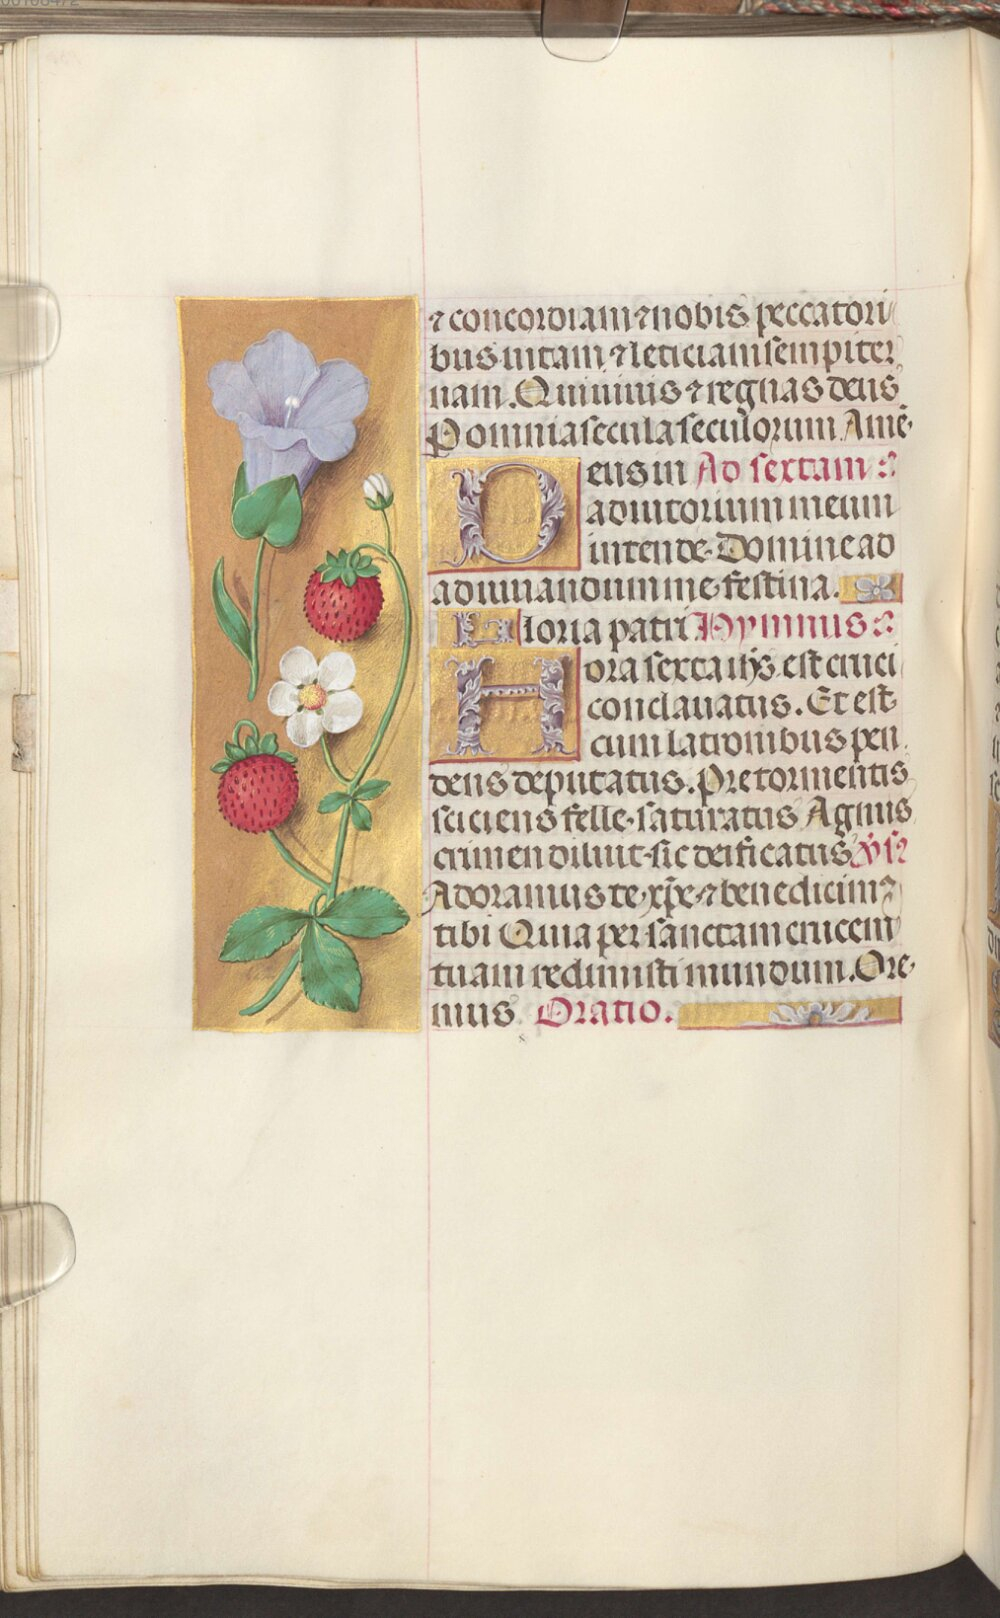 ⁊ concordiam ⁊ nobis peccatori
bus uitam ⁊ leticiam sempiter
nam. Qui uiuis ⁊ regnas deus
P omnia secula seculorum Amē.
Deus in Ad sextam :
adiutorium meum
intende. Domine ad
adiuuandum me festina.
Gloria patri Hymnus :
Hora sexta ihs est cruci
conclauatus. Et est
cum latronibus pen
dens deputatus. Pre tormentis
sciciens felle saturatus Agnus
crimen diluit sic deificatus ỹsꝛ
Adoramus te xpē ⁊ benedicimꝰ
tibi Quia per sanctam crucem
tuam redimisti mundum. Ore
mus. Oratio.